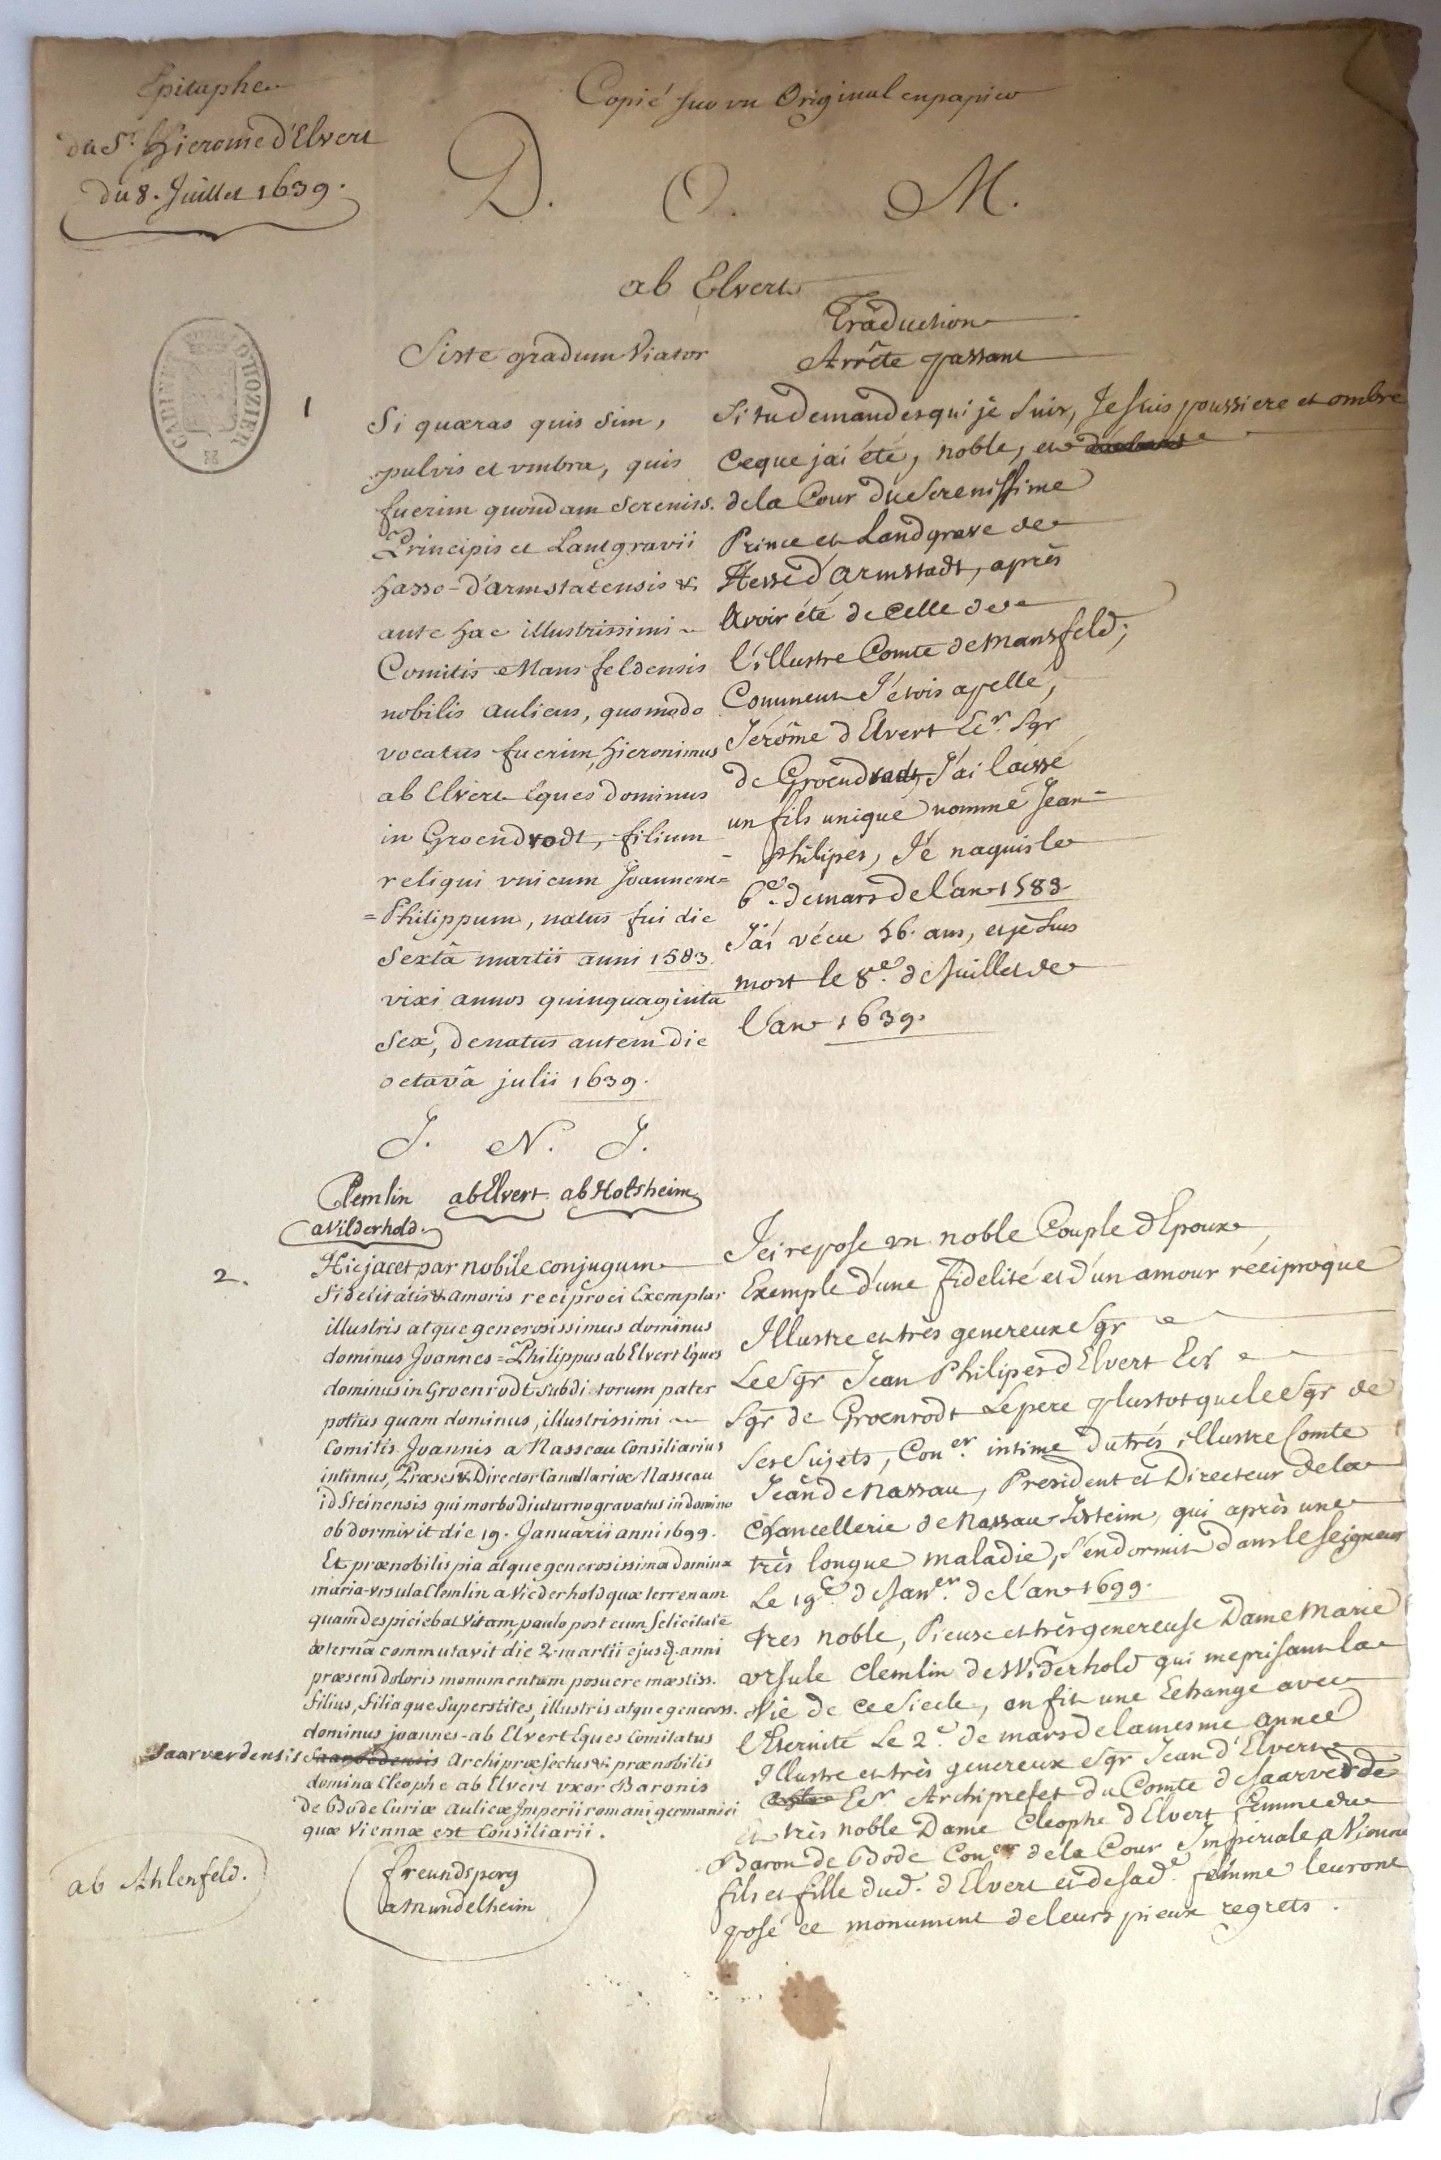 Epitaphe
du Sr. Hierome d'Elvert
du 8. Juillet 1639.
Copié sur un Original en papier
D. O. M.
ab Elvert
CABINET D'HOZIER
1
Siste gradum Viator
Si quæras quis sim,
pulvis et vmbra, quis
fuerim quondam Sereniss.
Principis et Lantgravii
hasso-d'armstatensis &
ante hac illustrissimi
Comitis Mansfeldensis
nobilis aulicus, quomodo
vocatus fuerim, hieronimus
ab Elvert Eques dominus
in Groendrodt, filium
reliqui vnicum Joannem=
=Philippum, natus fui die
Sextâ martii anni 1583.
vixi annos quinquaginta
Sex, denatus autem die
octavâ julii 1639.
Traduction
Arrête passant
Si tu demandes qui je suis, Je suis poussiere et ombre
Ce que jai été, noble, et
de la Cour du Serenissime
Prince et Landgrave de
Hesse d'Armstadt, après
Avoir été de celle de
l'illustre Comte de Mansfeld;
Comment J'étois apellé,
Jérôme d'Elvert Ecr. Sgr
de Groendrodt, J'ai laissé
un fils unique nommé Jean=
philipes, Je naquis le
6e. de mars de l'an 1583
J'ai vécu 56. ans, et je suis
mort le 8e. de Juillet de
l'an 1639.
J. N. J.
Clemlin ab Elvert ab Holsheim
a Vilderhold.
2.
Hic jacet par nobile conjugum
Fidelitatis & amoris reciproci Exemplar
illustris atque generosissimus dominus
dominus Joannes=Philippus ab Elvert Eques
dominus in Groenrodt subditorum pater
potius quam dominus, illustrissimi
Comitis Joannis a Nasseau Consiliarius
intimus, Præses & Director Canallariæ Nasseau
idsteinensis qui morbo diuturno gravatus in domino
obdormivit die 19. Januarii anni 1699.
Et prænobilis pia atque generosissima domina
maria-vrsula Clemlin a Viederhold quæ terrenam
quam despiciebat vitam, paulo post cum felicitate
æternâ commutavit die 2. martii ejusd. anni
præsens doloris monumentum posuere mæstiss.
filius, filiaque Superstites, illustris atque geneross.
dominus joannes-ab Elvert Eques Comitatus
Saarverdensis Archipræfectus & prænobilis
domina Cleophe ab Elvert vxor Baronis
de Bode Curiæ aulicæ Imperii romani germanici
quæ Viennæ est Consiliarii.
Jci repose un noble Couple d'Epoux
Exemple d'une fidelité et d'un amour réciproque
Illustre et très genereux Sgr
Le Sgr Jean Philipes d'Elvert Ecr
Sgr de Groenrodt Le pere plustot que le Sgr de
ses Sujets, Coner. intime du trés illustre Comte
Jean de Nassau, President et Directeur de la
Chancellerie de Nassau-Jsteim, qui après une
très longue maladie, s'endormit dans le Seigneur
Le 19e. de Janer. de l'an 1699.
tres noble, Pieuse et très genereuse Dame Marie
vrsule Clemlin de Widerhold qui meprisant la
Vie de ce Siecle, en fit une Echange avec
l'Eternité Le 2e. de mars de la mesme année
Illustre et très genereux Sgr Jean d'Elvert
Ecr Archiprefet du Comté de Saarverdde
Et très noble Dame Cleophe d'Elvert femme du
Baron de Bode Coner de la Cour Impériale a Vienne
fils et fille dud. d'Elvert et de sade. femme leur ont
posé ce monument de leurs pieux regrets.
ab Ahlenfeld.
freundsperg
a Mundelheim